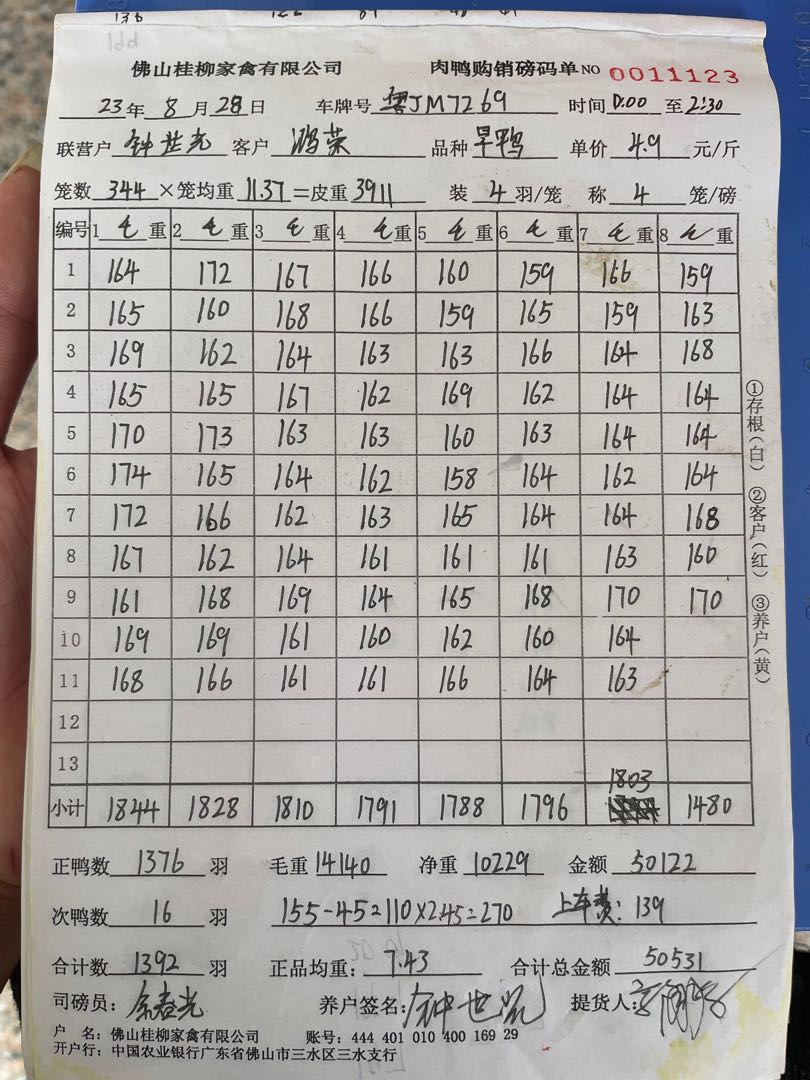 佛山桂柳家禽有限公司 肉鸭购销磅码单 NO 0011123
23年 8月 28日 车牌号 粤JM7269 时间 0:00 至 2:30
联营户 钟世光 客户 鸿荣 品种 旱鸭 单价 4.9 元/斤
笼数 344 ×笼均重 11.37 =皮重 3911 装 4 羽/笼 称 4 笼/磅
编号 1 毛重 2 毛重 3 毛重 4 毛重 5 毛重 6 毛重 7 毛重 8 毛重
1 164 172 167 166 160 159 166 159
2 165 160 168 166 159 165 159 163
3 169 162 164 163 163 166 164 168
4 165 165 167 162 169 162 164 164
5 170 173 163 163 160 163 164 164
6 174 165 164 162 158 164 162 164
7 172 166 162 163 165 164 164 168
8 167 162 164 161 161 161 163 160
9 161 168 169 164 165 168 170 170
10 169 169 161 160 162 160 164
11 168 166 161 161 166 164 163
12
13
小计 1844 1828 1810 1791 1788 1796 1803 1480
正鸭数 1376 羽 毛重 14140 净重 10229 金额 50122
次鸭数 16 羽 155-45=110×2.45=270 上车费：139
合计数 1392 羽 正品均重： 7.43 合计总金额 50531
司磅员：余春光 养户签名：钟世光 提货人：
户 名：佛山桂柳家禽有限公司 账号：444 401 010 400 169 29
开户行：中国农业银行广东省佛山市三水区三水支行
①存根（白） ②客户（红） ③养户（黄）